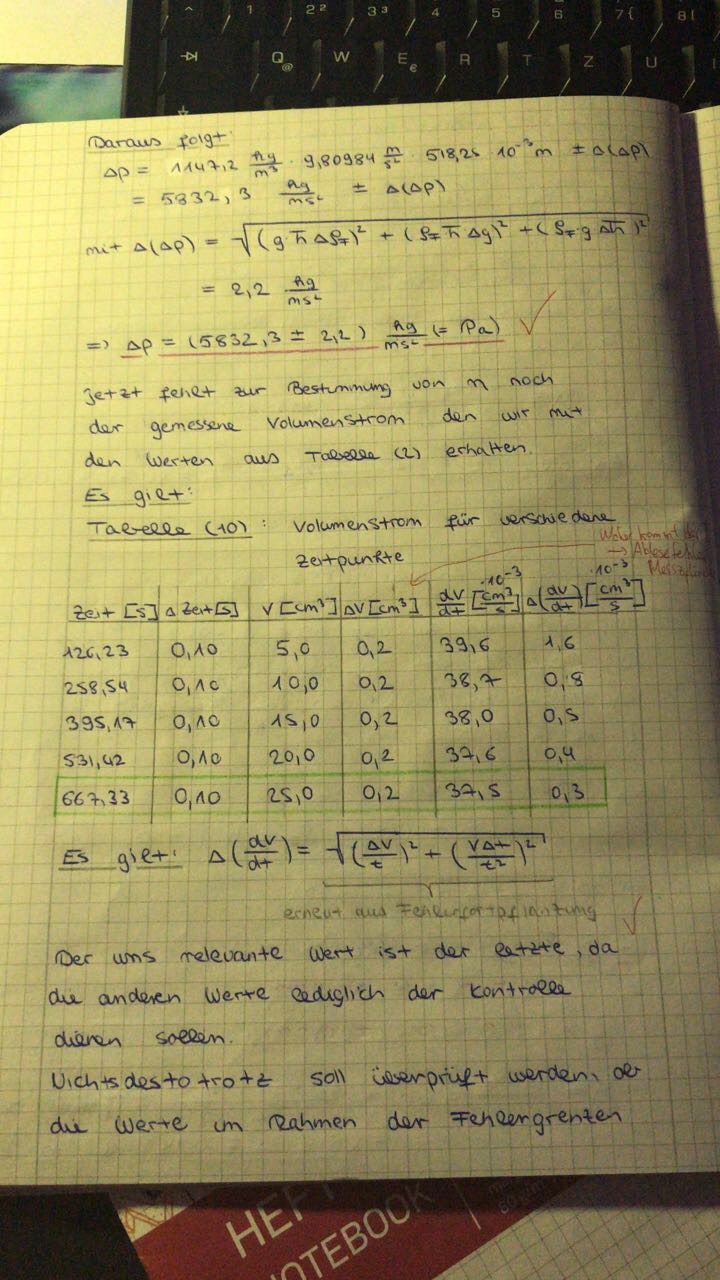 Q W E R T Z U
Daraus folgt:
Δp = 1147,2 kg/m³ · 9,80984 m/s² · 518,25 · 10⁻³ m ± Δ(Δp)
= 5832,3 kg/ms² ± Δ(Δp)
mit Δ(Δp) = √((g h̄ Δρ_F)² + (ρ_F h̄ Δg)² + (ρ_F · g Δh̄)²)
= 2,2 kg/ms²
=> Δp = (5832,3 ± 2,2) kg/ms² (= Pa) ✓
Jetzt fehlt zur Bestimmung von η noch
der gemessene Volumenstrom den wir mit
den Werten aus Tabelle (2) erhalten.
Es gilt:
Tabelle (10): Volumenstrom für verschiedene
Zeitpunkte
Woher kommt der
→ Ablesefehler
Zeit [s] Δ Zeit [s] V [cm³] ΔV [cm³] dV/dt ·10⁻³ [cm³/s] Δ(dV/dt) ·10⁻³ [cm³/s]
126,23 0,10 5,0 0,2 39,6 1,6
258,54 0,10 10,0 0,2 38,7 0,8
395,17 0,10 15,0 0,2 38,0 0,5
531,42 0,10 20,0 0,2 37,6 0,4
667,33 0,10 25,0 0,2 37,5 0,3
Es gilt: Δ(dV/dt) = √((ΔV/t)² + (VΔt/t²)²)
erneut aus Fehlerfortpflanzung ✓
Der uns relevante Wert ist der letzte, da
die anderen Werte lediglich der Kontrolle
dienen sollen.
Nichtsdestotrotz soll überprüft werden, ob
die Werte im Rahmen der Fehlergrenzen
HEFT
NOTEBOOK